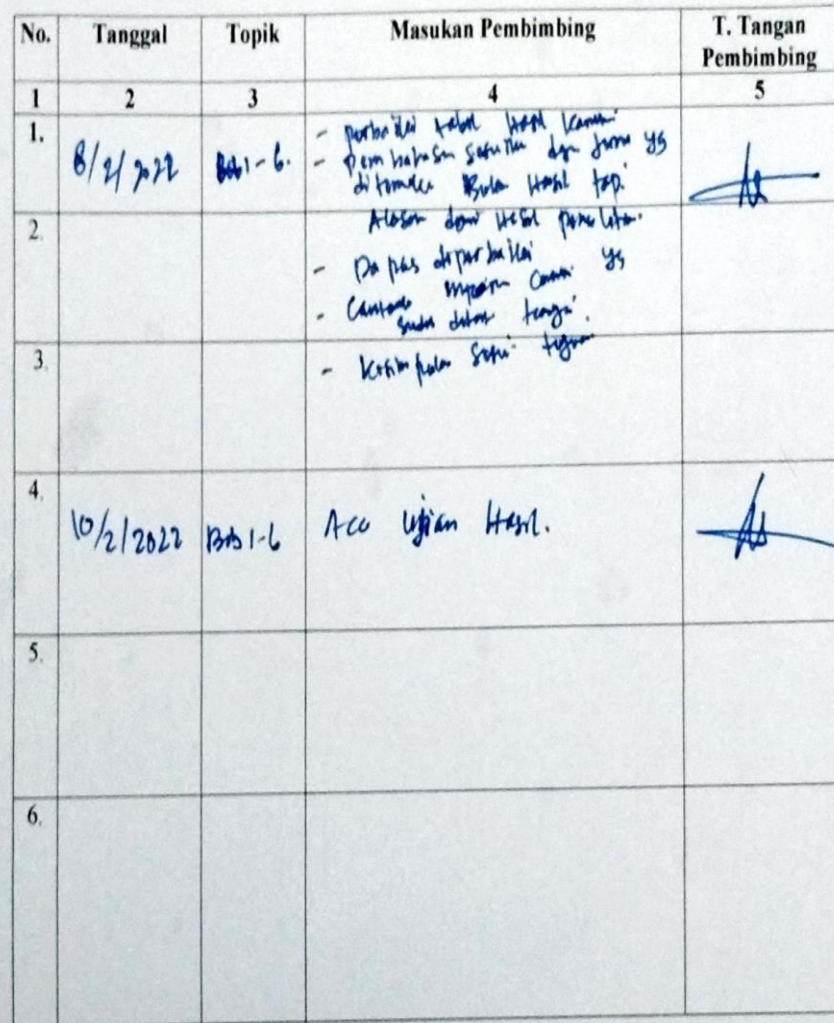 No. Tanggal Topik Masukan Pembimbing T. Tangan Pembimbing
1 2 3 4 5
1. 8/2/2022 Bab 1-6. - perbaiki tabel Hasil
- Pembahasan sesuai dgn yg
ditemukan Bukan Hasil tapi
Alasan dari Hasil penelitian.
2. - Dapus diperbaiki
- yg
sudah
3. - Kesimpulan sesuai tujuan
4. 10/2/2022 Bab 1-6 Acc Ujian Hasil.
5.
6.